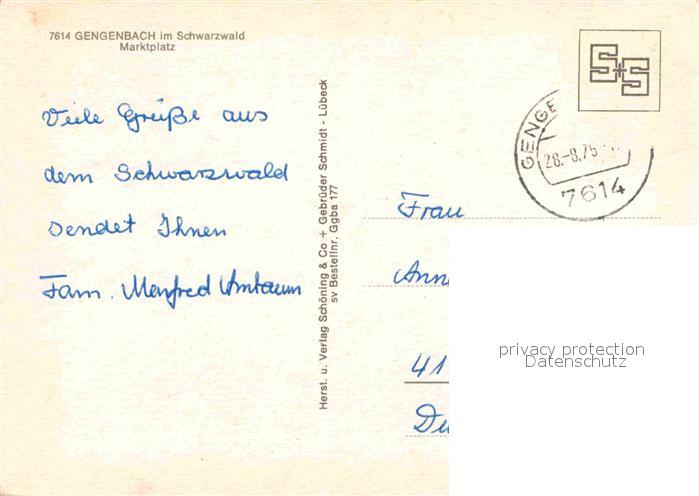 7614 GENGENBACH im Schwarzwald
Marktplatz
Viele Grüße aus
dem Schwarzwald
sendet Ihnen
Fam. Manfred
Herst. u. Verlag Schöning & Co + Gebrüder Schmidt - Lübeck
sv Bestellnr. Ggba 177
S+S
GENGE
28.-8.75
7614
Frau
Ann
41
privacy protection
Datenschutz